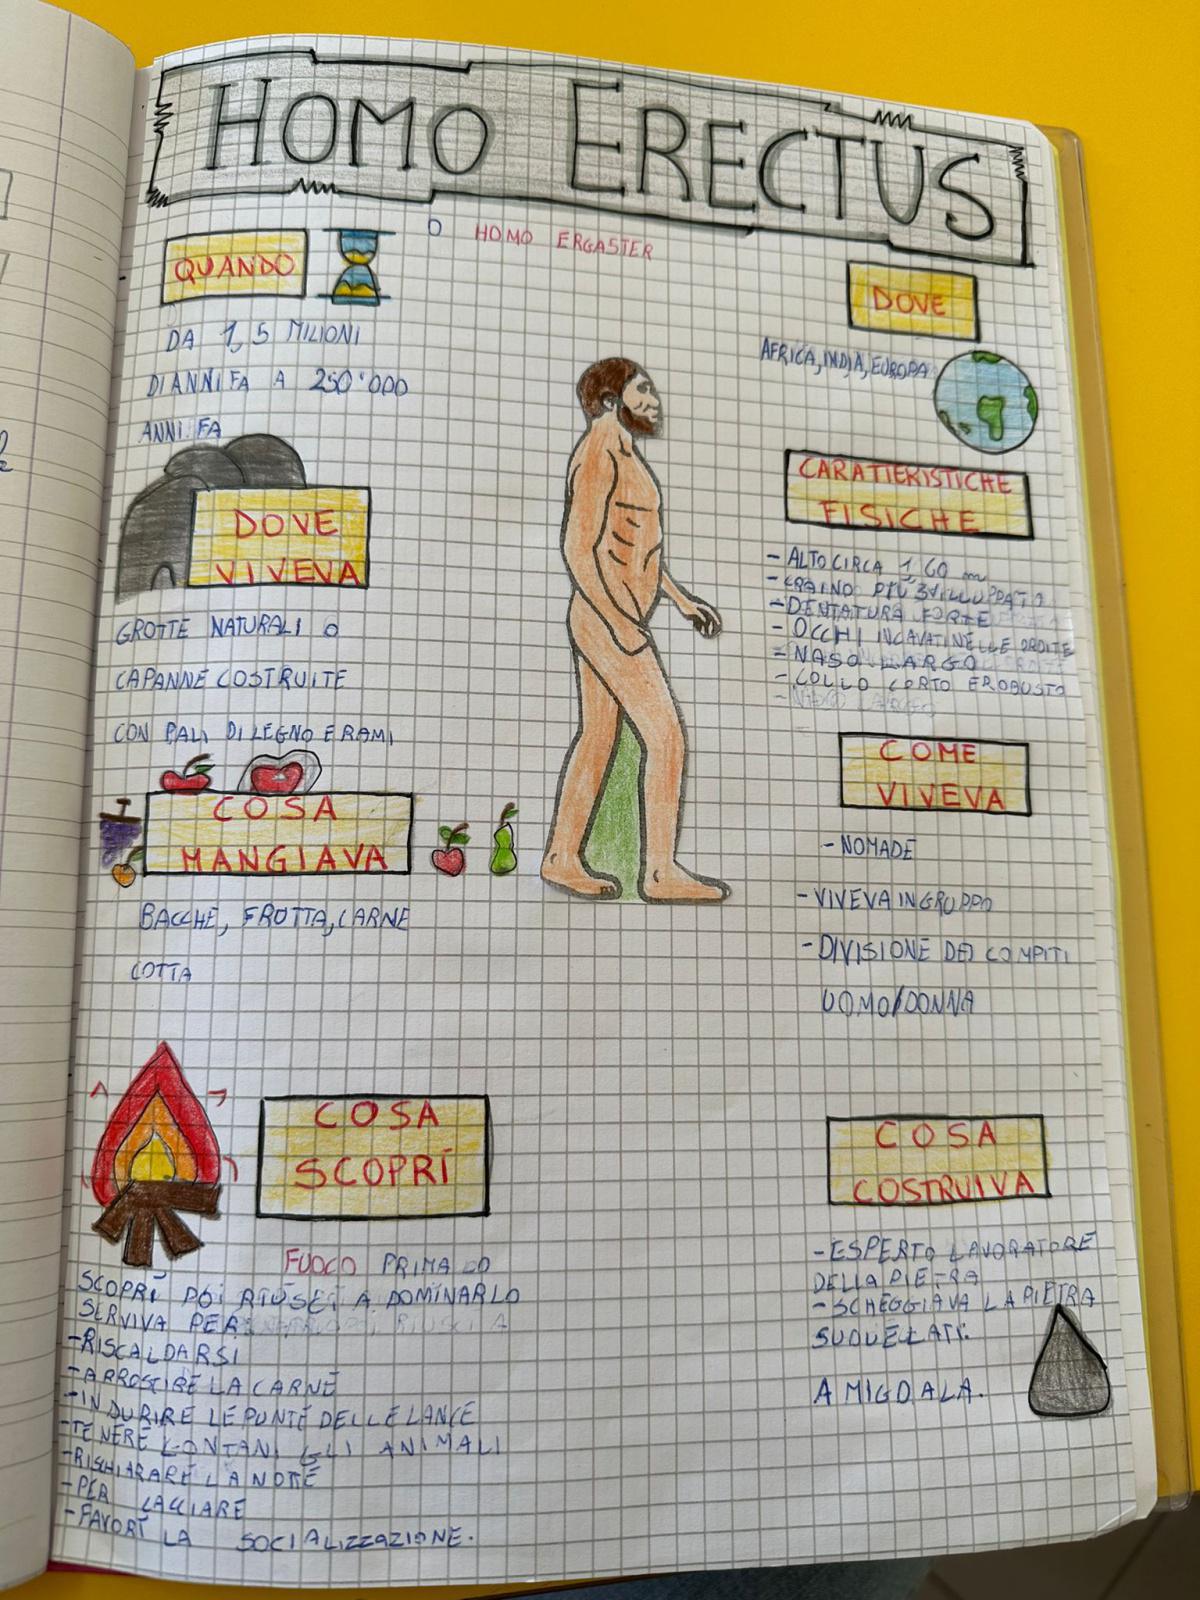 HOMO ERECTUS
O HOMO ERGASTER
QUANDO
DA 1,5 MILIONI
DI ANNI FA A 250'000
ANNI FA
DOVE
VIVEVA
GROTTE NATURALI O
CAPANNE COSTRUITE
CON PALI DI LEGNO E RAMI
COSA
MANGIAVA
BACCHE, FRUTTA, CARNE
COTTA
COSA
SCOPRÌ
FUOCO PRIMA LO
SCOPRÌ POI RIUSCÌ A DOMINARLO
SERVIVA PER
-RISCALDARSI
-ARROSTIRE LA CARNE
-INDURIRE LE PUNTE DELLE LANCE
-TENERE LONTANI GLI ANIMALI
-RISCHIARARE LA NOTTE
-PER CACCIARE
-FAVORÌ LA SOCIALIZZAZIONE.
DOVE
AFRICA, INDIA, EUROPA
CARATTERISTICHE
FISICHE
-ALTO CIRCA 1,60 m
-CRAINO PIÙ SVILUPPATO
-DENTATURA FORTE
-OCCHI INCAVATI NELLE ORBITE
-NASO LARGO
-COLLO CORTO E ROBUSTO
COME
VIVEVA
-NOMADE
-VIVEVA IN GRUPPO
-DIVISIONE DEI COMPITI
UOMO/DONNA
COSA
COSTRUIVA
-ESPERTO LAVORATORE
DELLA PIETRA
-SCHEGGIAVA LA PIETRA
SU DUE LATI:
AMIGDALA.